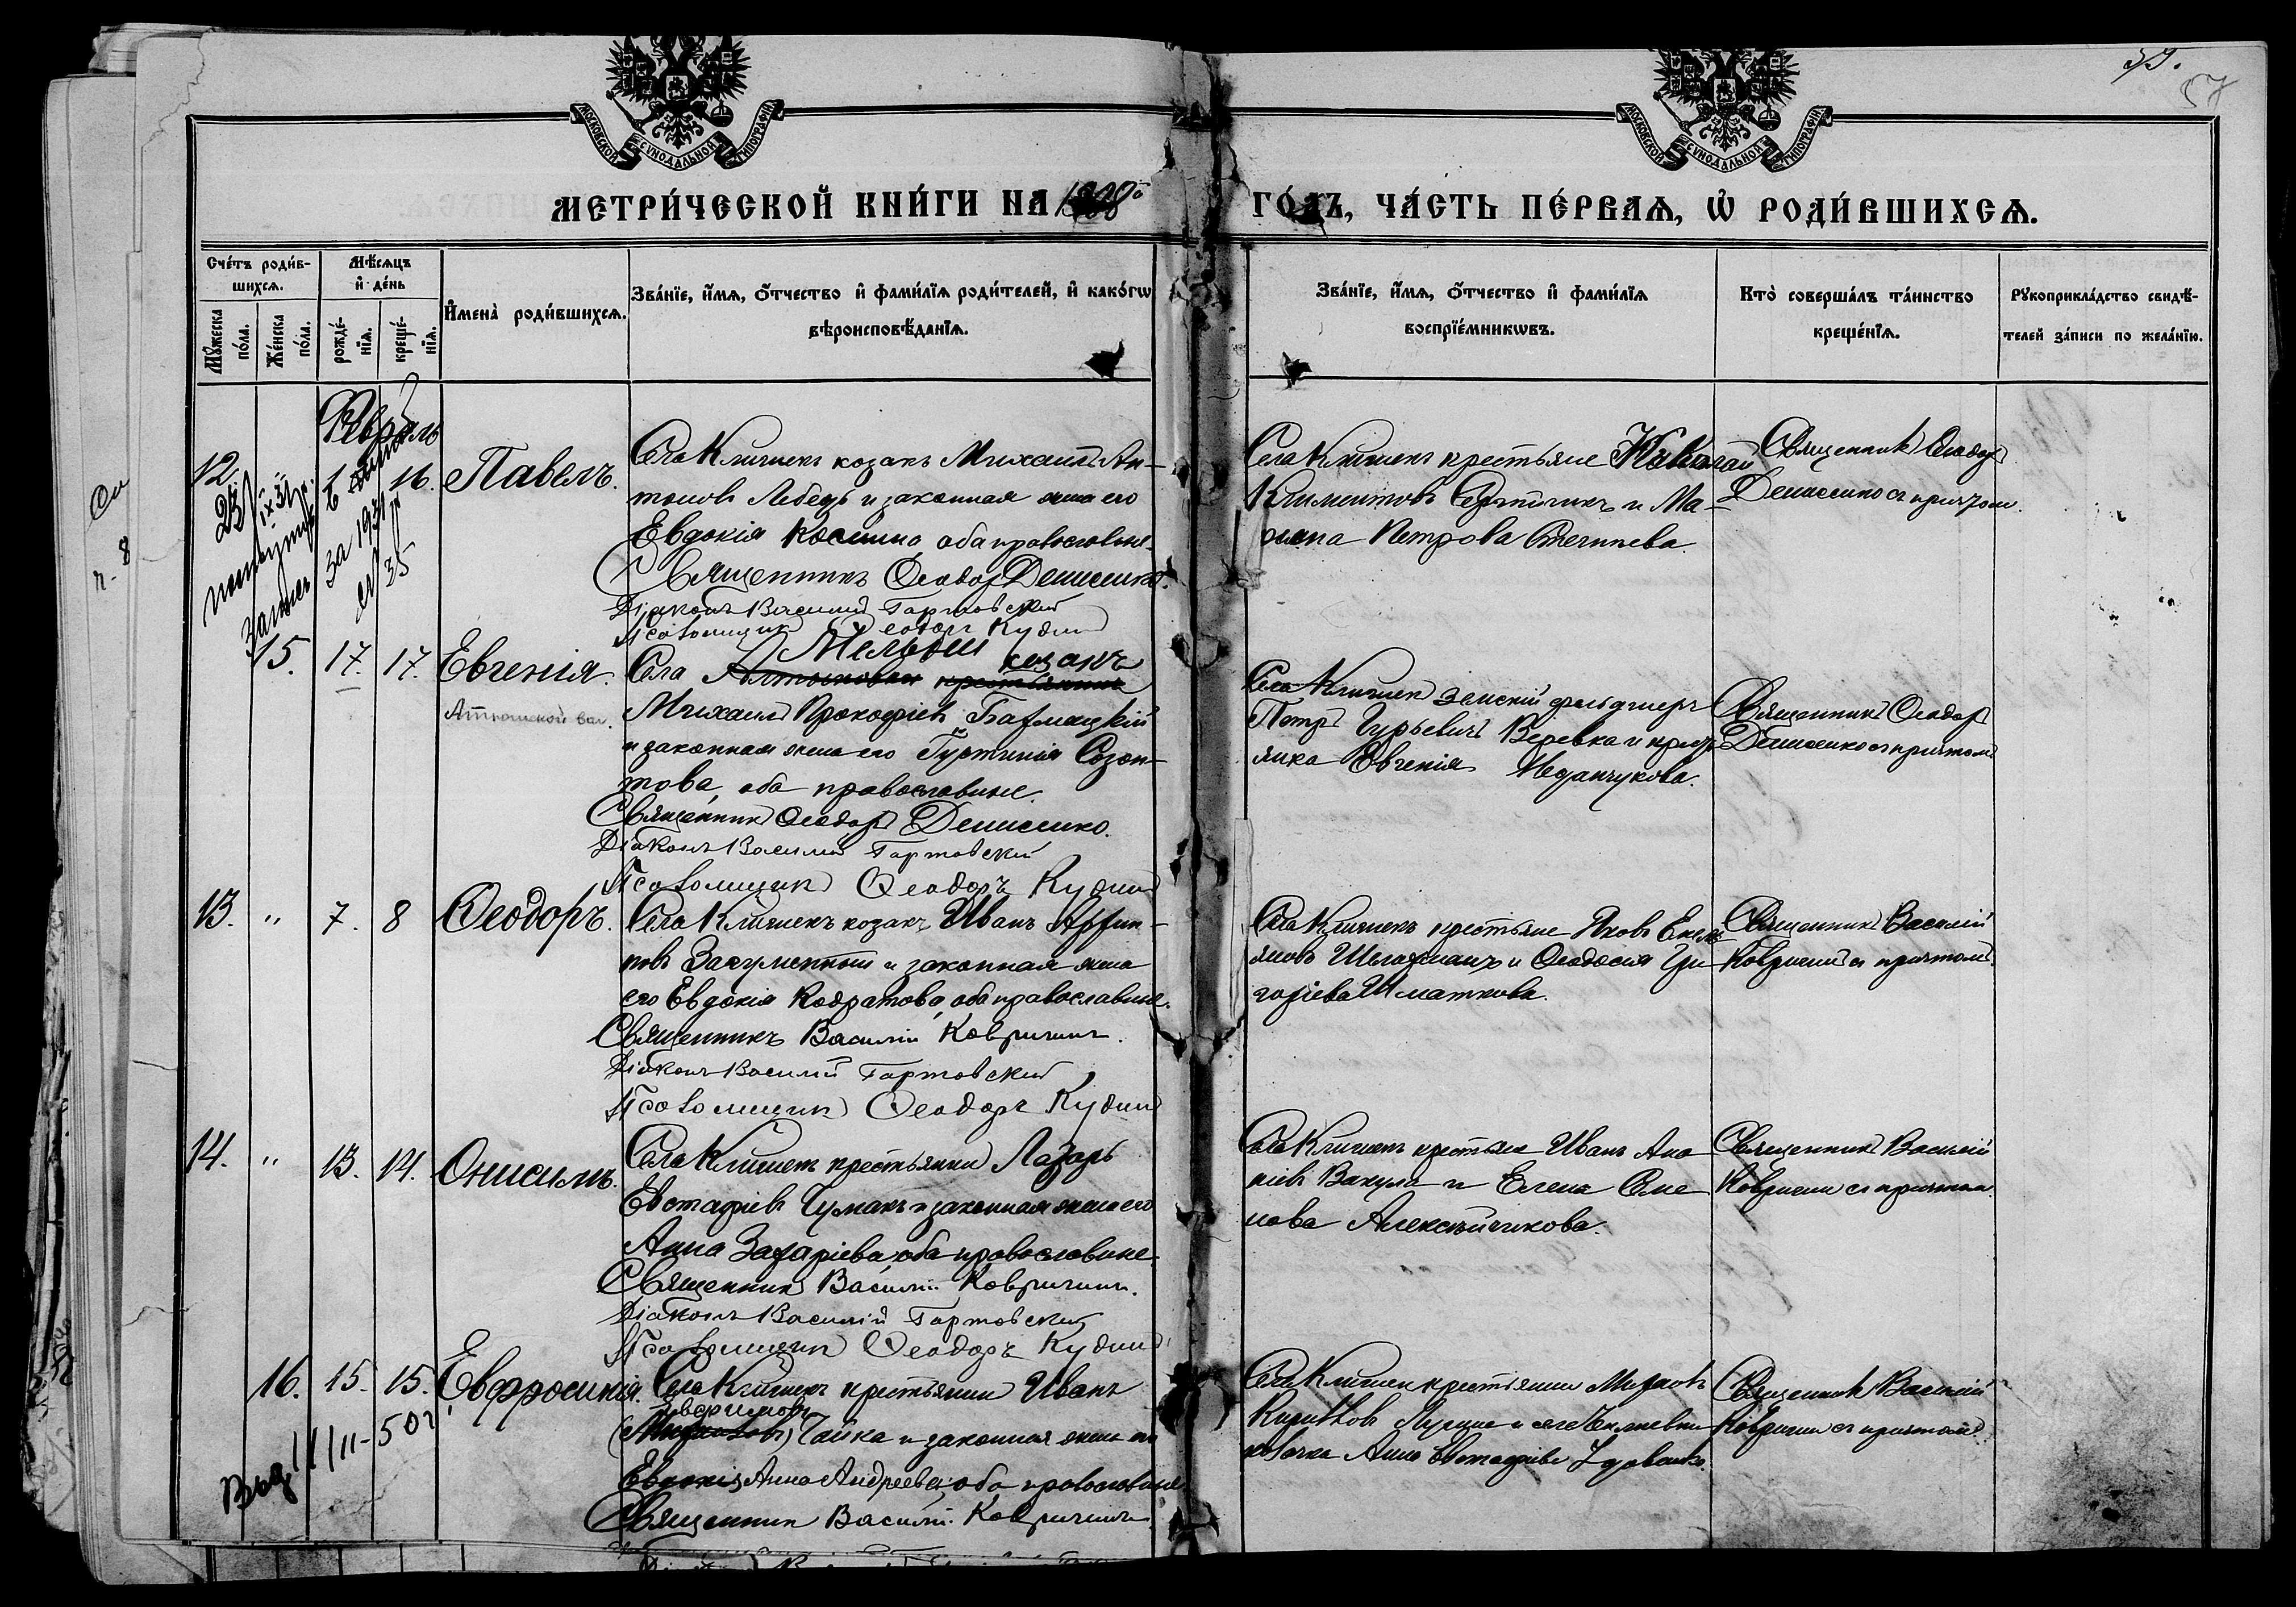 МОСКОВСКОЙ СУНОДАЛЬНОЙ ТИПОГРАФІИ
МОСКОВСКОЙ СУНОДАЛЬНОЙ ТИПОГРАФІИ
57
МЕТРИ́ЧЕСКОЙ КНИ́ГИ НА
ГО́ДЪ, ЧА́СТЬ ПЕ́РВАѦ, Ѡ РОДИ́ВШИХСѦ.
Сче́тъ роди́в-
шихсѧ.
Мꙋ́жеска по́ла.
Же́нска по́ла.
Мѣ́сѧцъ
и҆ де́нь
рожде́-
нїѧ.
креще́-
нїѧ.
И҆мена̀ роди́вшихсѧ.
Зва́нїе, и҆́мѧ, ѻ҆́тчество и҆ фами́лїѧ роди́телей, и҆ како́гѡ
вѣроисповѣ́данїѧ.
Зва́нїе, и҆́мѧ, ѻ҆́тчество и҆ фами́лїѧ
воспрїе́мникѡвъ.
Кто̀ соверша́лъ та́инство
креще́нїѧ.
Рꙋкоприкла́дство свидѣ́-
телей за́писи по жела́нїю.
Февраль
12. 16. Павелъ.
Села Клишекъ козакъ Михаилъ Ан-
тоновъ Лебедь и законная жена его
Евдокія Косьмина, оба православные.
Священникъ Ѳеодоръ Денисенко.
Діаконъ Василий Гортовский
Псаломщикъ Ѳеодоръ Кудин
Села Клишекъ крестьяне Николай
Климентовъ и Ма-
Петрова
Священникъ Ѳеодоръ
Денисенко съ причтомъ.
запись за 1931 г
35
15. 17. 17. Евгенія.
козакъ
Села Антоновки крестьянинъ
Михаилъ Прокофіевъ
и законная жена его Іустинія Созон-
това, оба православные.
Священникъ Ѳеодоръ Денисенко.
Діаконъ Василий Гортовский
Псаломщикъ Ѳеодоръ Кудин
Села Клишекъ земскій фельдшеръ
Петръ Гурьевичъ Веревка и
Евгенія
Священникъ Ѳеодоръ
Денисенко съ причтомъ
13. " 7. 8 Ѳеодоръ.
Села Клишекъ козакъ Иванъ
и законная жена
его Евдокія Кодратова, оба православные.
Священникъ Василій Ковригинъ.
Діаконъ Василий Гортовский
Псаломщикъ Ѳеодоръ Кудин
Села Клишекъ крестьяне Яковъ Емель-
яновъ и Ѳеодосія Гри-
горіева Шматкова.
Священникъ Василій
Ковригинъ съ причтомъ.
14. " 13. 14. Онисимъ.
Села Клишекъ крестьянинъ Лазарь
Евстафіевъ Чумакъ и законная жена его
Анна Захаріева, оба православные
Священникъ Василій Ковригинъ.
Діаконъ Василій Гортовский
Псаломщикъ Ѳеодоръ Кудин
Села Клишекъ крестьяне Иванъ Ана-
ніевъ Вакула и Елена Симе-
нова Алексѣйчикова.
Священникъ Василій
Ковригинъ съ причтом
16. 15. 15. Евфросинія.
Села Клишекъ крестьянинъ Иванъ
Чайка и законная жена его
Евдокія Анна Андреева, оба православные
Священникъ Василій Ковригинъ.
Села Клишекъ крестьянинъ
Анна Евстафіева
Священникъ Василій
Ковригинъ съ причтомъ